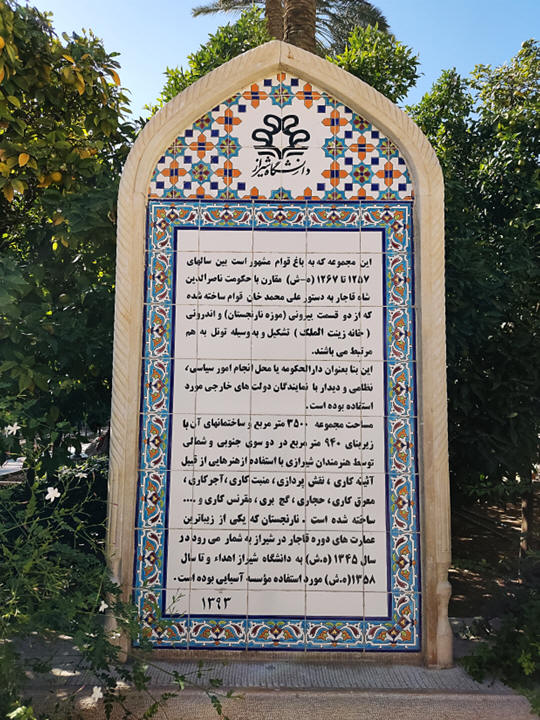 دانشگاه شیراز
این مجموعه که به باغ قوام مشهور است بین سالهای
۱۲۵۷ تا ۱۲۶۷ (ه-ش) مقارن با حکومت ناصرالدین
شاه قاجار به دستور علی محمد خان قوام ساخته شده
که از دو قسمت بیرونی (موزه نارنجستان) و اندرونی
(خانه زینت الملک) تشکیل و به وسیله تونل به هم
مرتبط می باشند.
این بنا بعنوان دارالحکومه یا محل انجام امور سیاسی،
نظامی و دیدار با نمایندگان دولت های خارجی مورد
استفاده بوده است.
مساحت مجموعه ۳۵۰۰ متر مربع و ساختمانهای آن با
زیربنای ۹۴۰ متر مربع در دو سوی جنوبی و شمالی
توسط هنرمندان شیرازی با استفاده از هنرهایی از قبیل
آئینه کاری، نقش پردازی، منبت کاری، آجرکاری،
معرق کاری، حجاری، گچ بری، مقرنس کاری و ....
ساخته شده است. نارنجستان که یکی از زیباترین
عمارت های دوره قاجار در شیراز به شمار می رود در
سال ۱۳۴۵ (ه.ش) به دانشگاه شیراز اهداء و تا سال
۱۳۵۸(ه.ش) مورد استفاده مؤسسه آسیایی بوده است.
۱۳۹۳